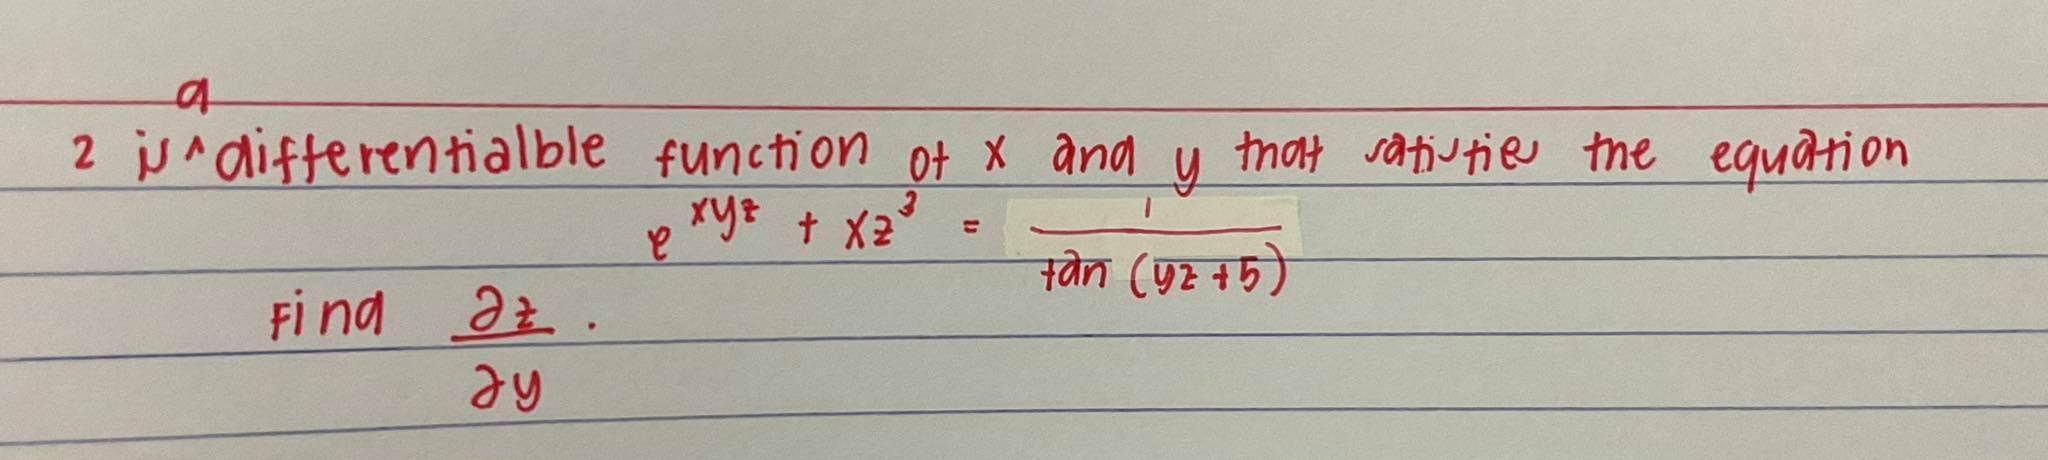 a
z is ^ differentialble function of x and y that satisfies the equation
e^{xyz} + xz^3 = \frac{1}{tan (yz + 5)}
Find \frac{∂z}{∂y} .